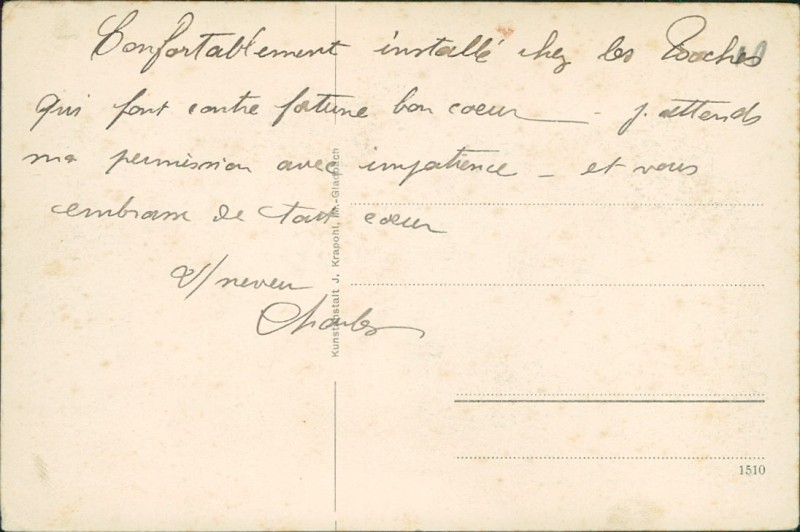 Confortablement installé chez les Boches
qui font contre fortune bon coeur — j. attends
ma permission avec impatience — et vous
embrasse de tout coeur
V/ neveu
Charles
Kunstanstalt J. Krapohl, M.-Gladbach
1510